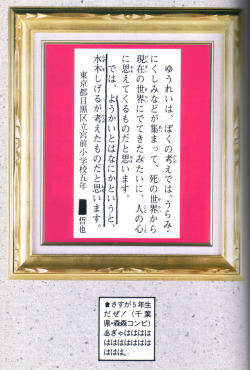 ゆうれいは、ぼくの考えでは、うらみ・
にくしみなどが集まって、死の世界から
現在の世界にでてきたみたいに、人の心
に思えてくるものだと思います。
では、ようかいとはなにかというと、
水木しげるが考えたものだと思います。
東京都目黒区立宮前小学校五年
哲也
⬆さすが5年生
だぜ!(千葉
県・森森コンビ)
あぎゃははは
ははははははは
ははは。